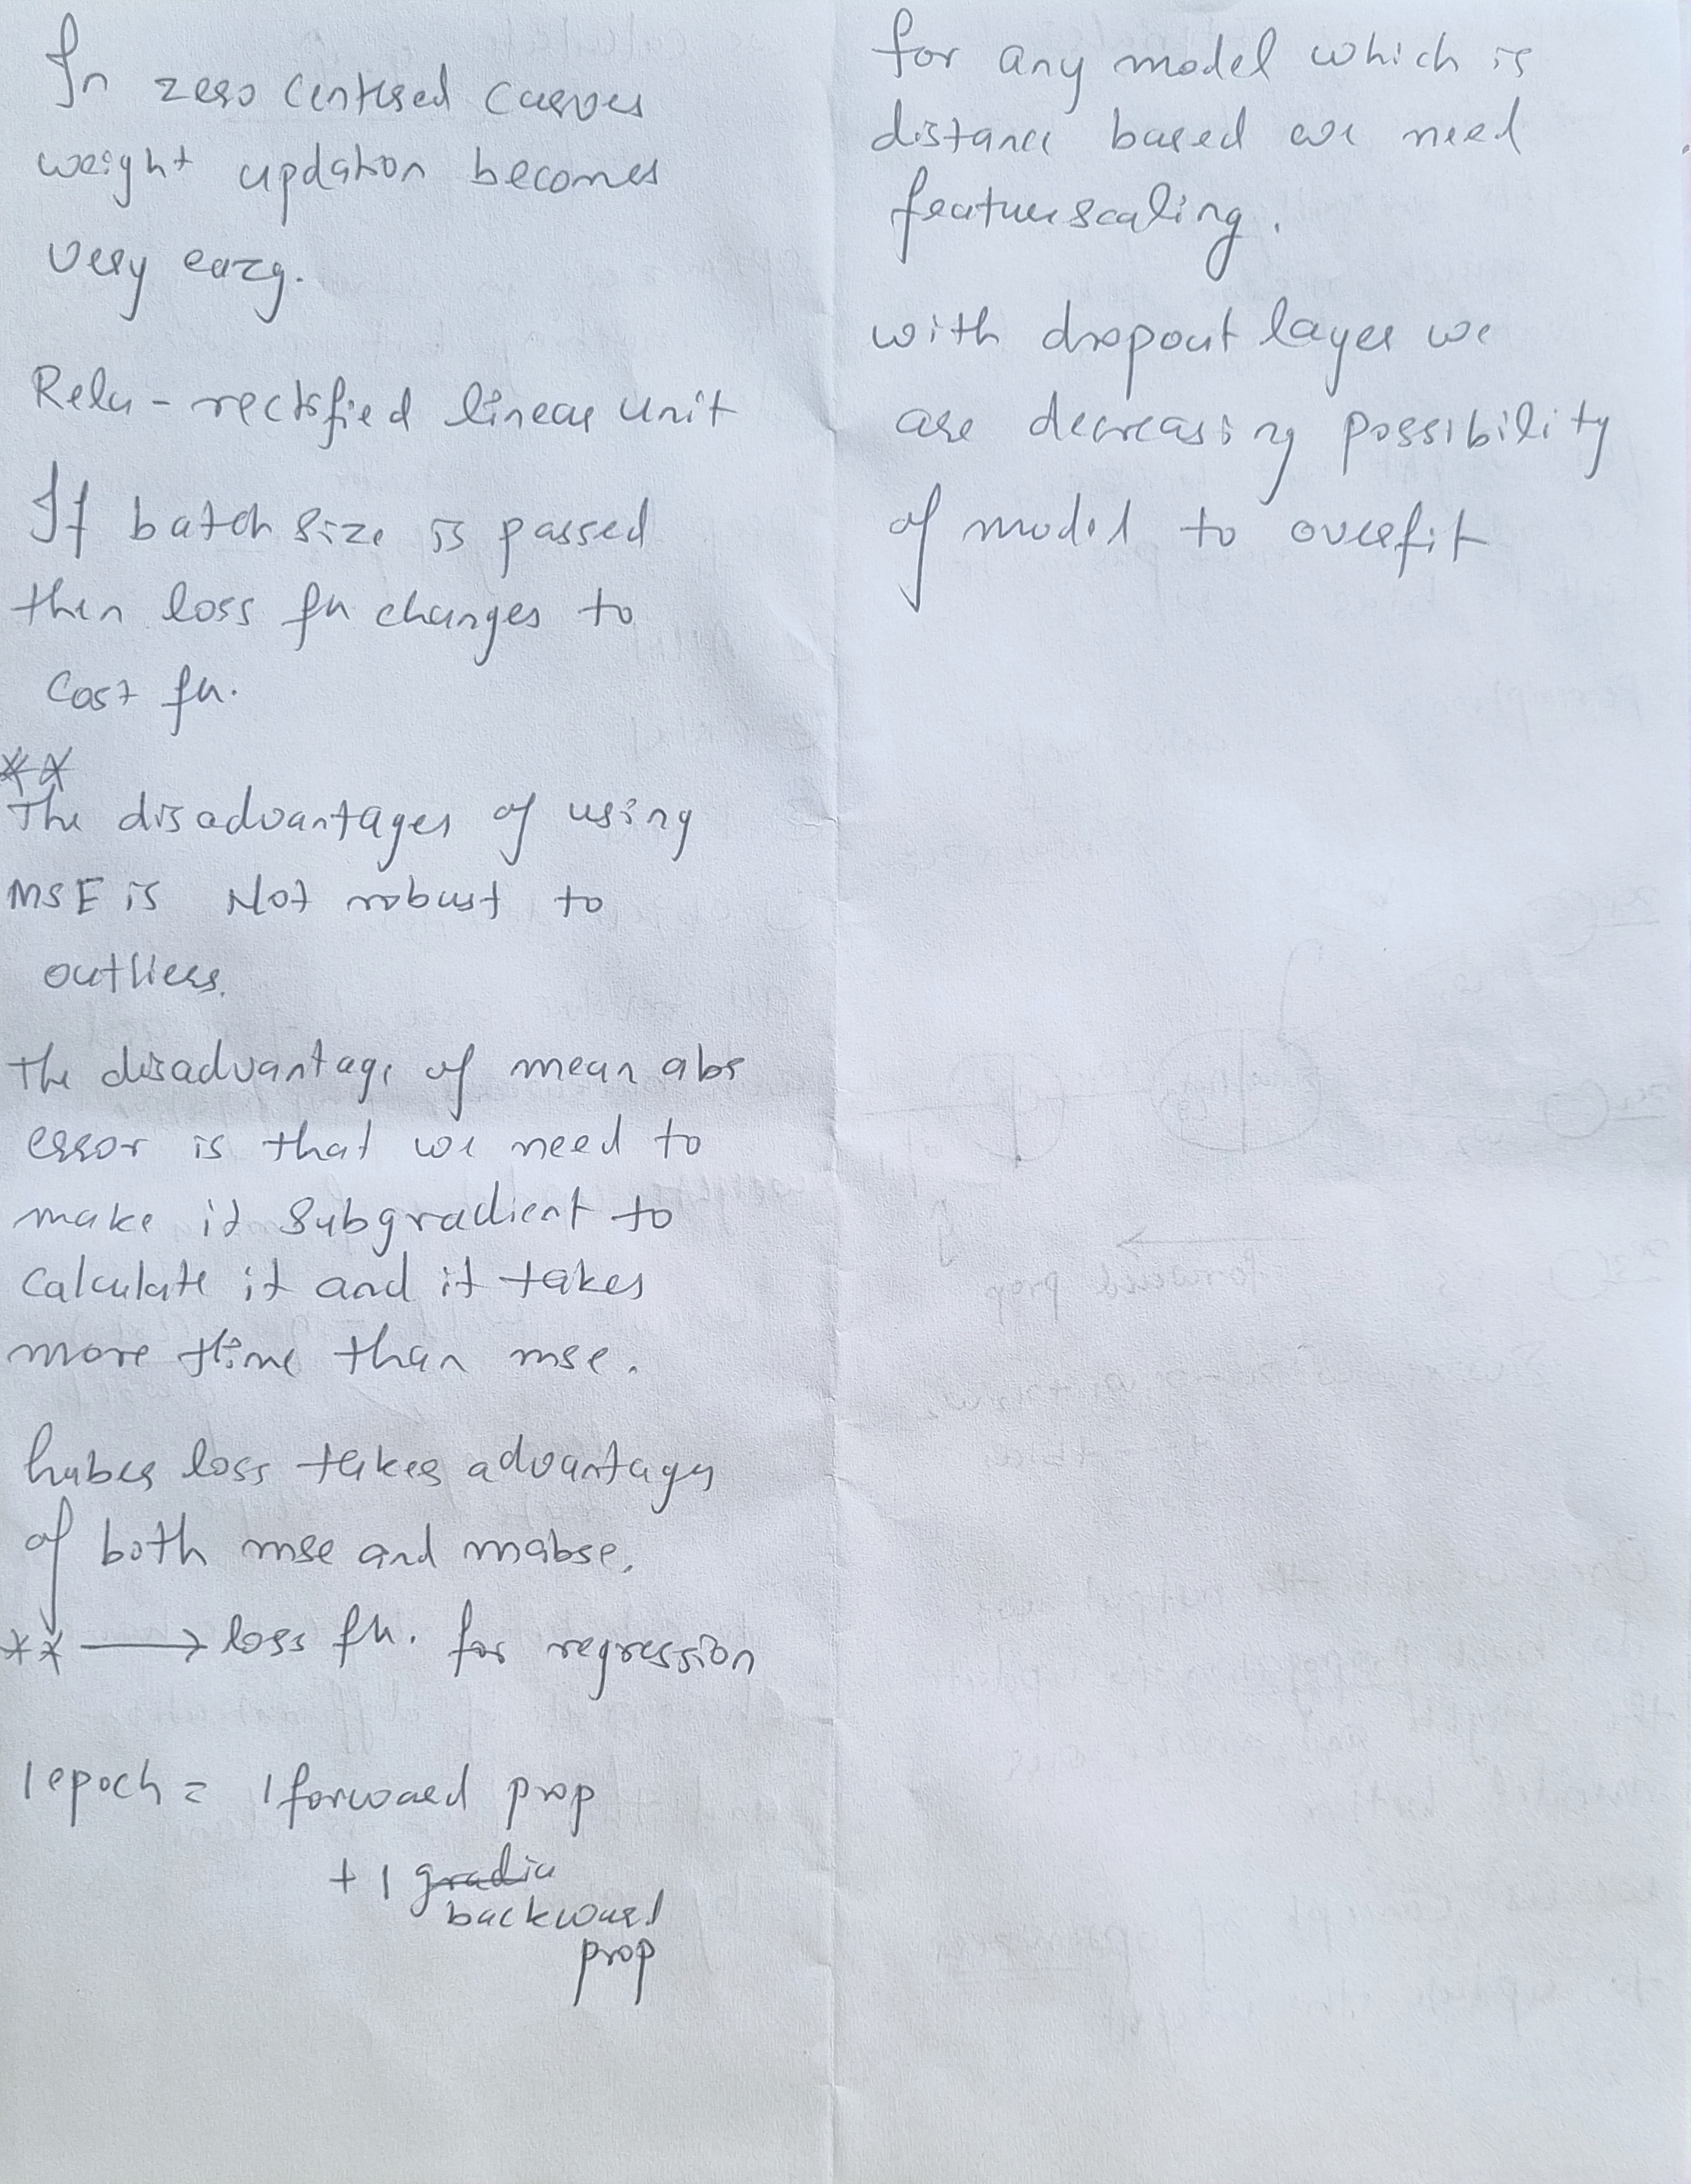 In zero centered curves
weight updation becomes
very eazy.
Relu - rectified linear unit
If batch size is passed
then loss fn changes to
Cost fn.
**
The disadvantages of using
MSE is Not robust to
outliers.
The disadvantage of mean abs
error is that we need to
make it subgradient to
calculate it and it takes
more time than mse.
huber loss takes advantages
of both mse and mabse.
** → loss fn. for regression
1 epoch = 1 forward prop
+ 1 gradie
backward
prop
for any model which is
distance based we need
feature scaling.
with dropout layer we
are decreasing possibility
of model to overfit